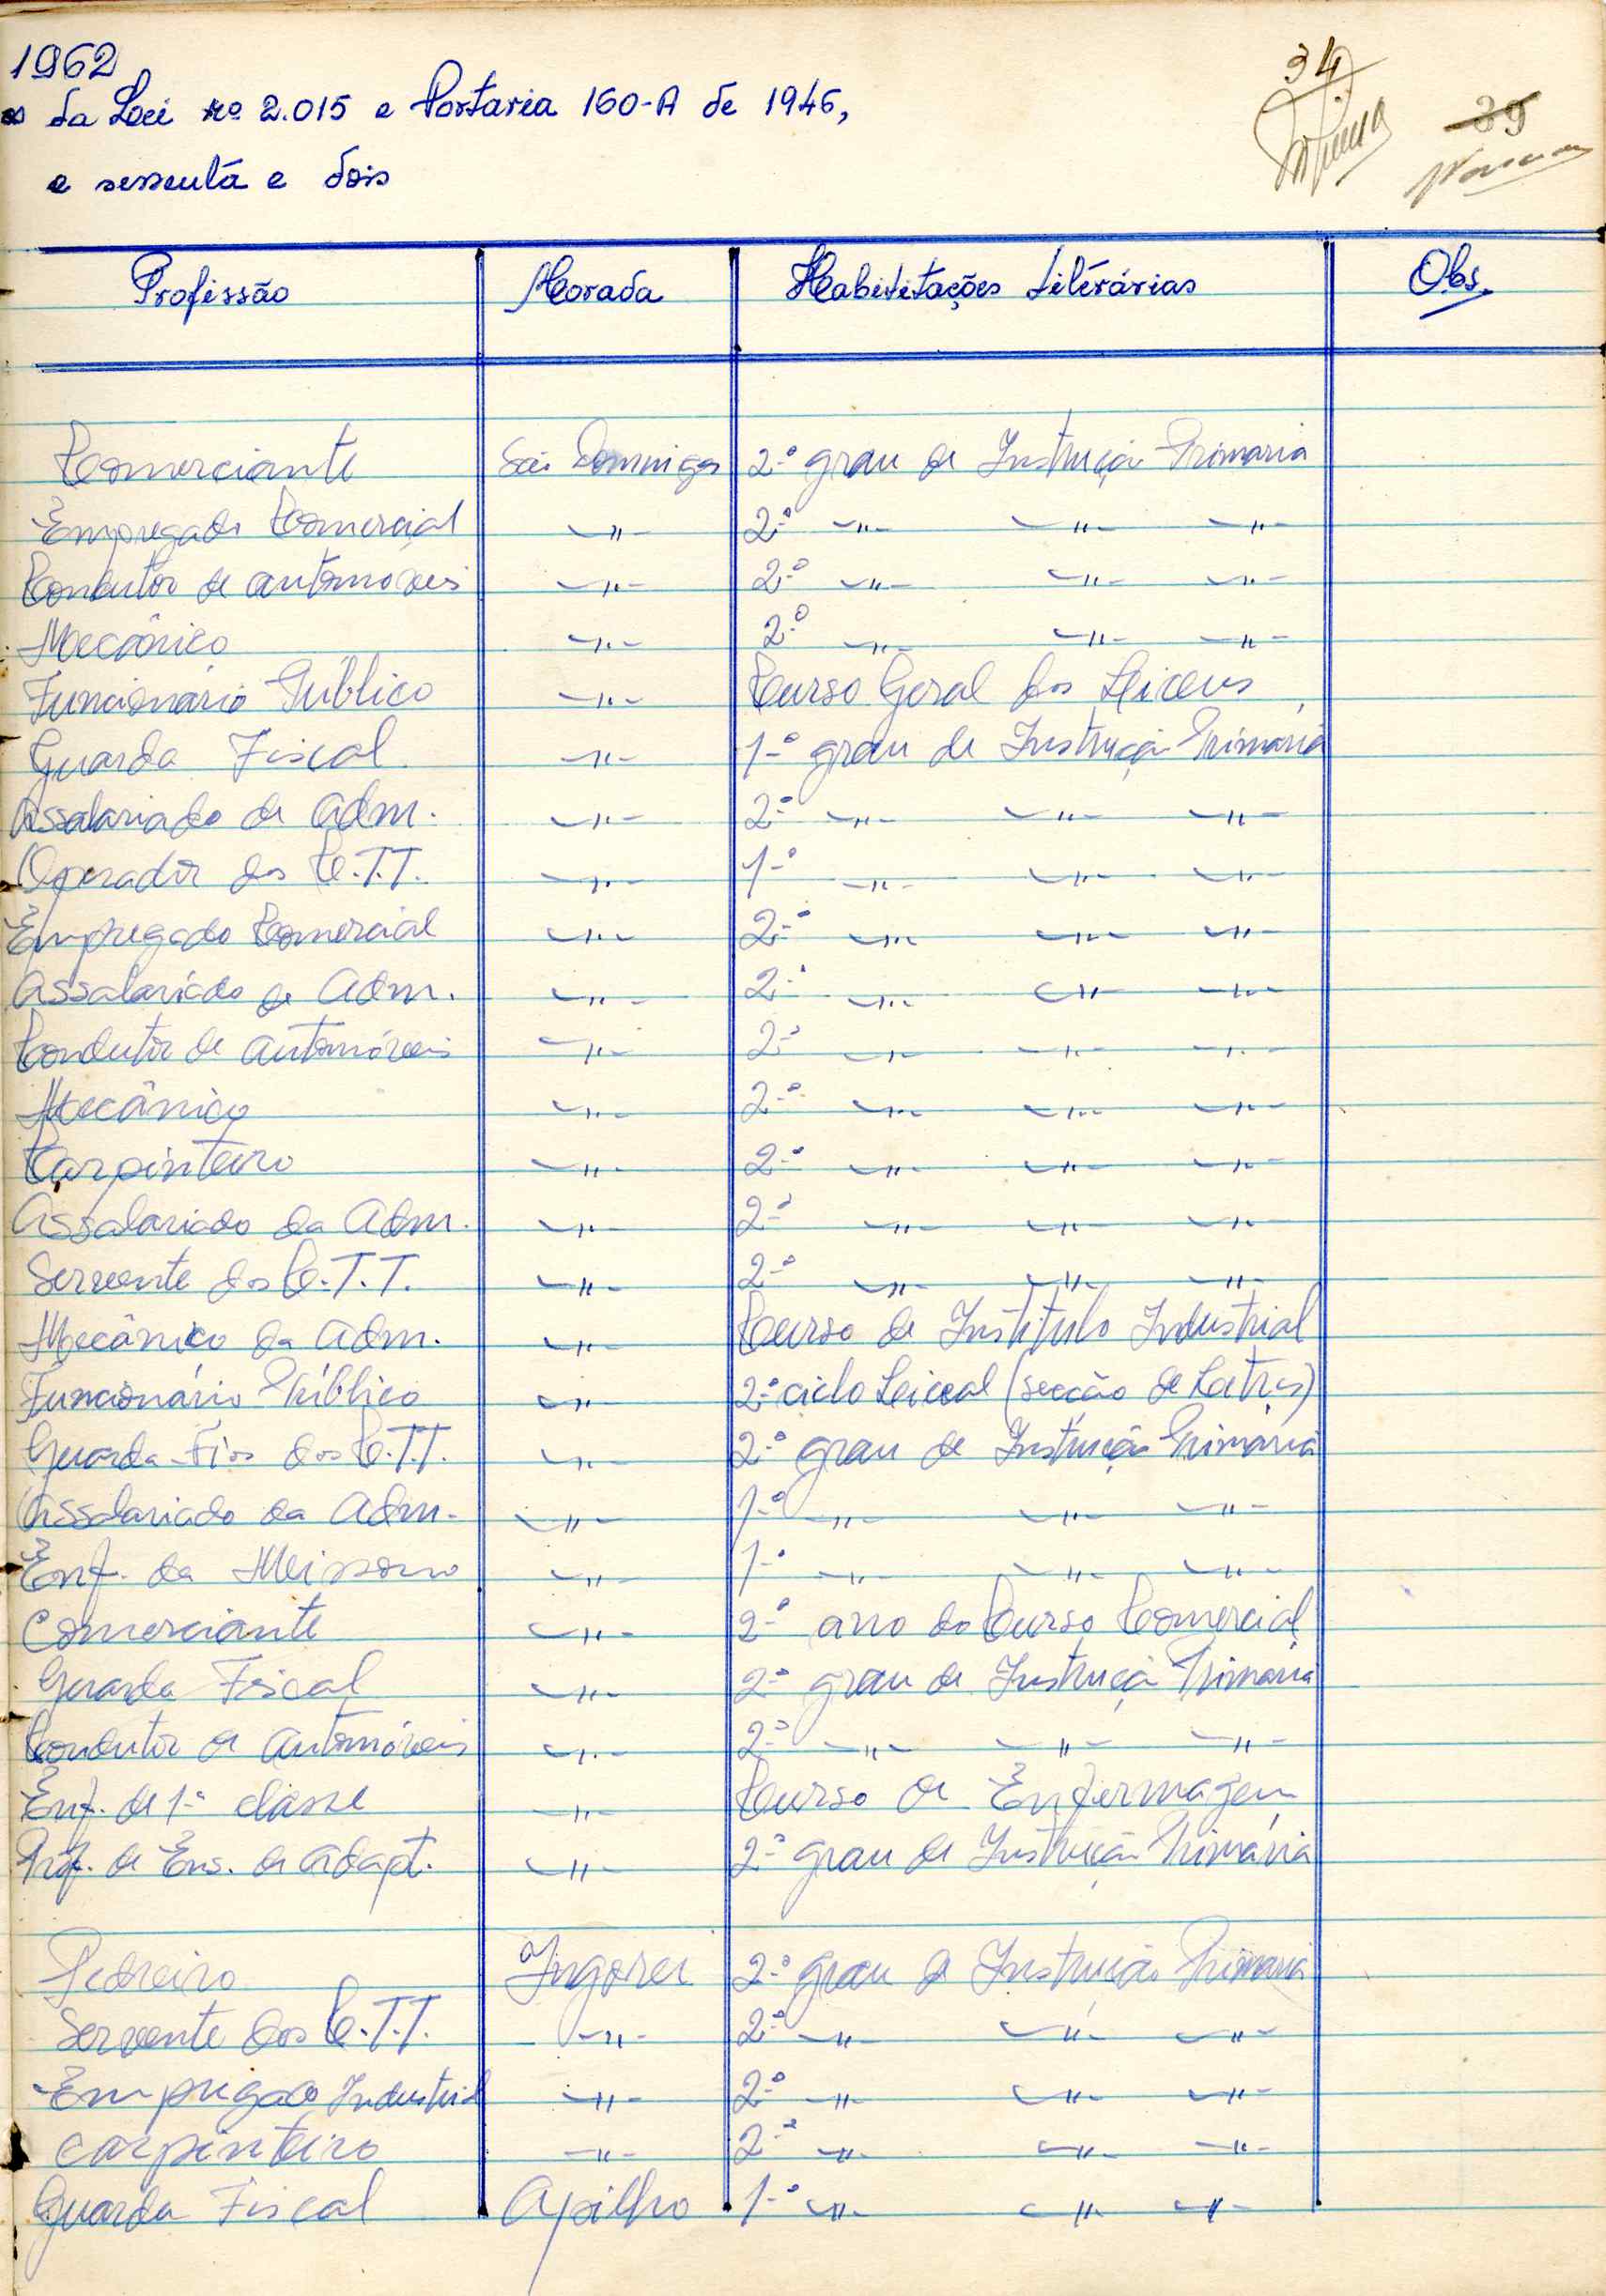 1962
da Lei nº 2.015 e Portaria 160-A de 1946,
e sessenta e dois
34
39
Profissão Morada Habilitações Literárias Obs.
Comerciante São Domingos 2.º grau de Instrução Primaria
Empregado Comercial —"— 2.º —"— —"— —"—
Condutor de automoveis —"— 2.º —"— —"— —"—
Mecânico —"— 2.º —"— —"— —"—
Funcionário Público —"— Curso Geral dos Liceus
Guarda Fiscal —"— 1.º grau de Instrução Primária
Assalariado da Adm. —"— 2.º —"— —"— —"—
Operador dos C.T.T. —"— 1.º —"— —"— —"—
Empregado Comercial —"— 2.º —"— —"— —"—
Assalariado da Adm. —"— 2.º —"— —"— —"—
Condutor de automóveis —"— 2.º —"— —"— —"—
Mecânico —"— 2.º —"— —"— —"—
Carpinteiro —"— 2.º —"— —"— —"—
Assalariado da Adm. —"— 2.º —"— —"— —"—
Servente dos C.T.T. —"— 2.º —"— —"— —"—
Mecânico da Adm. —"— Curso de Instituto Industrial
Funcionário Público —"— 2.º ciclo Liceal (secção de Letras)
Guarda-Fios dos C.T.T. —"— 2.º grau de Instrução Primária
Assalariado da Adm. —"— 1.º —"— —"— —"—
Enf. da Missão —"— 1.º —"— —"— —"—
Comerciante —"— 2.º ano do Curso Comercial
Guarda Fiscal —"— 2.º grau de Instrução Primária
Condutor de automóveis —"— 2.º —"— —"— —"—
Enf. de 1.ª classe —"— Curso de Enfermagem
Prof. de Ens. de Adapt. —"— 2.º grau de Instrução Primária
Pedreiro Ingorei 2.º grau de Instrução Primária
Servente dos C.T.T. —"— 2.º —"— —"— —"—
Empregado Industrial —"— 2.º —"— —"— —"—
Carpinteiro —"— 2.º —"— —"— —"—
Guarda Fiscal Apilho 1.º —"— —"— —"—